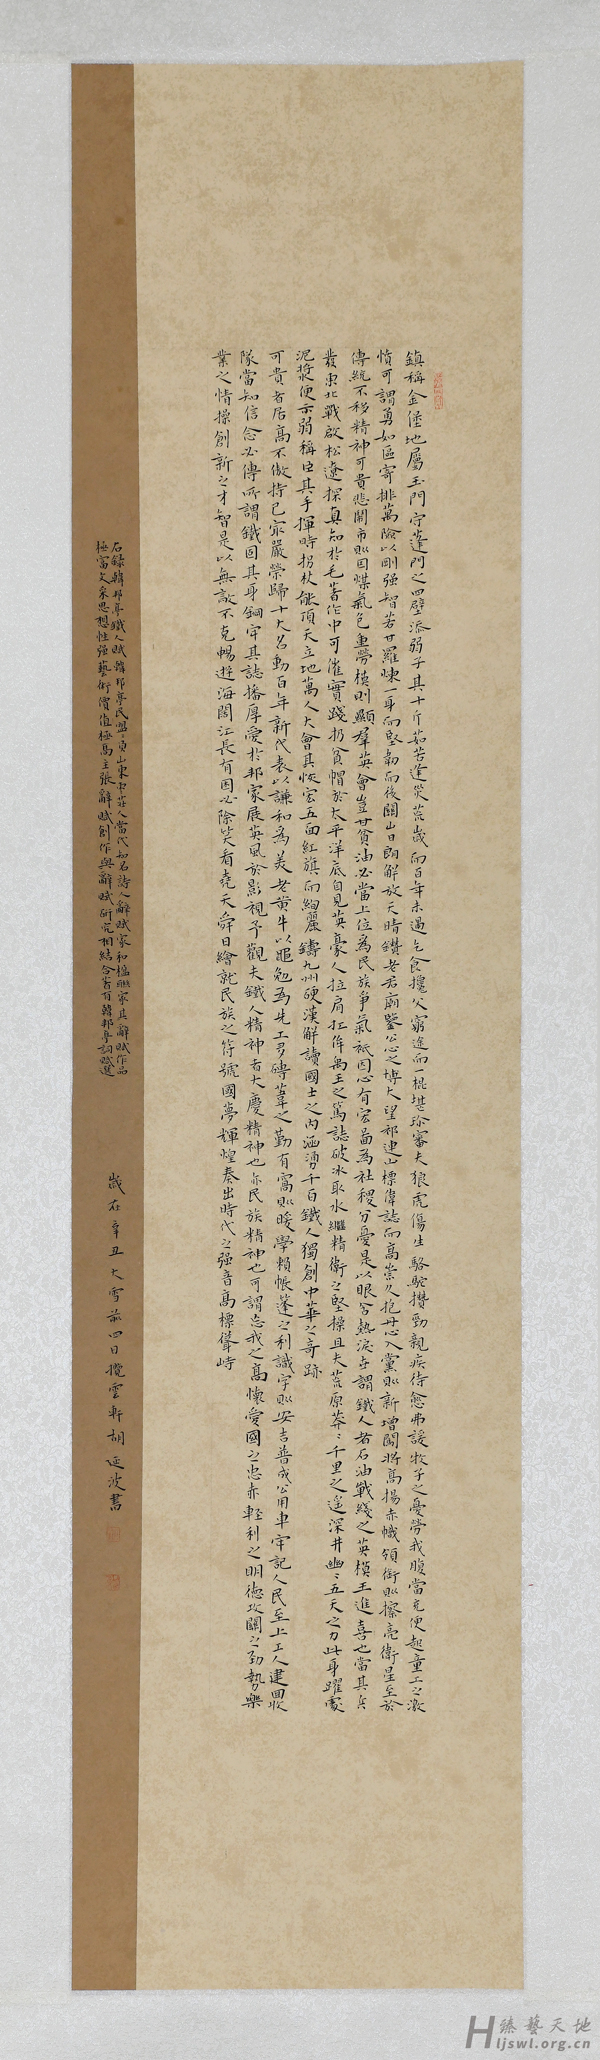 鎮稱金堡地屬玉門守蓬門之四壁添弱子其十斤茹苦逢災荒歲而百年未遇乞食攙父窮途而一棍堪珍審夫狼虎傷生駱駝攢勁親疾待愈弗諼牧子之憂勞我腹當充便起童工之激
憤可謂勇如區寄排萬險以剛強智若甘羅煉一身而堅韌而後關山日朗解放天晴鑽老君廟鑒公心之博大望祁連山標偉誌而高崇久抱丹心入黨則新增闖將高揚赤幟領銜則擦亮衛星至於
傳統不移精神可貴悲鬧市則因煤氣包重勞模則顯羣英會豈甘貧油必當上位為民族爭氣祇因心有宏圖為社稷分憂是以眼含熱淚言謂鐵人者石油戰綫之英模王進喜也當其兵
發東北戰啟松遼探真知於毛著作中可催實踐扔貧帽於太平洋底自見英豪人拉肩扛侔禹王之篤誌破冰取水繼精衛之堅操且夫荒原莽〻千里之遙深井幽〻五天之力此身躍處
泥漿便示弱稱臣其手揮時拐杖能頂天立地萬人大會其恢宏五面紅旗而絢麗鑄九州硬漢解讀國士之內涵湧千百鐵人獨創中華之奇跡
可貴者居高不傲持己最嚴榮歸十大名動百年新代表以謙和為美老黃牛以黽勉為先工多磚葦之勤有窩則暖學賴帳蓬之利識字則安吉普成公用車牢記人民至上工人建回收
隊當知信念必傳所謂鐵因其身鋼牢其誌播厚愛於邦家展英風於影視予觀夫鐵人精神者大慶精神也亦民族精神也可謂忘我之高懷愛國之忠赤輕利之明德攻關之勁勢樂
業之情操創新之才智是以無敵不克暢遊海闊江長有困必除笑看堯天舜日繪就民族之符號國夢輝煌奏出時代之強音高標聳峙
右錄韓邦亭鐵人賦韓邦亭民盟〻員山東中莊人當代知名詩人辭賦家和楹聯家其辭賦作品
極富文采思想性強藝術價值極高主張辭賦創作與辭賦研究相結合著有韓邦亭詞賦選
歲在辛丑大雪前四日攬雲軒胡延波書
臻藝天地
Hljswl.org.cn